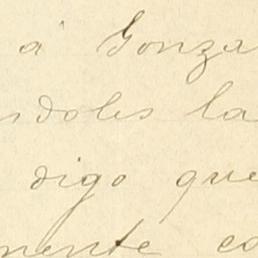 á Gonza
ndoles la
digo que
mente co